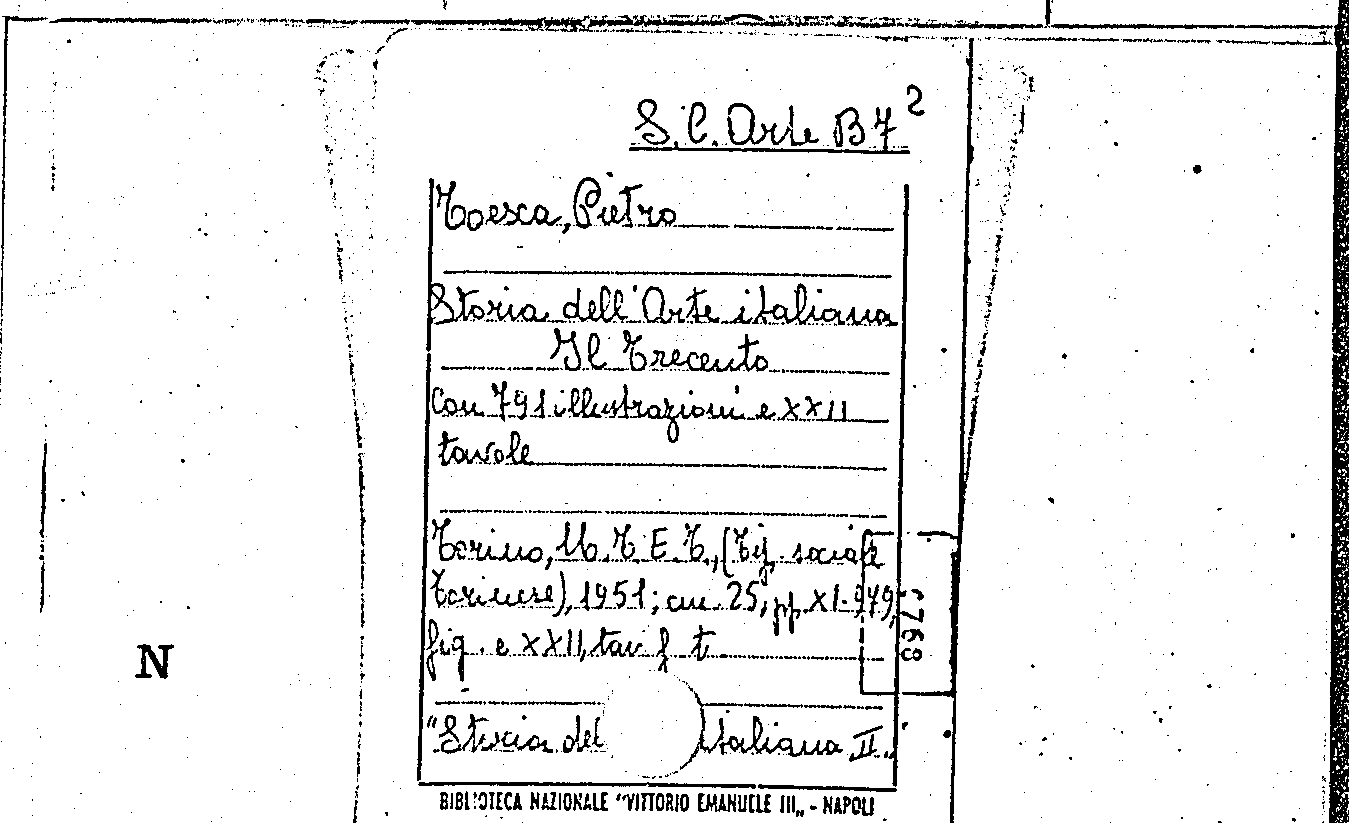 S.C. Arte B 7²
Toesca, Pietro
Storia dell'Arte italiana
Il Trecento
con 791 illustrazioni e XXII
tavole
Torino, U.T.E.T., (Tip. sociale
torinese), 1951; cm. 25, pp. XI-979,
fig. e XXII, tav. f. t.
"Storia del italiana II„
N
BIBLIOTECA NAZIONALE "VITTORIO EMANUELE III„ - NAPOLI